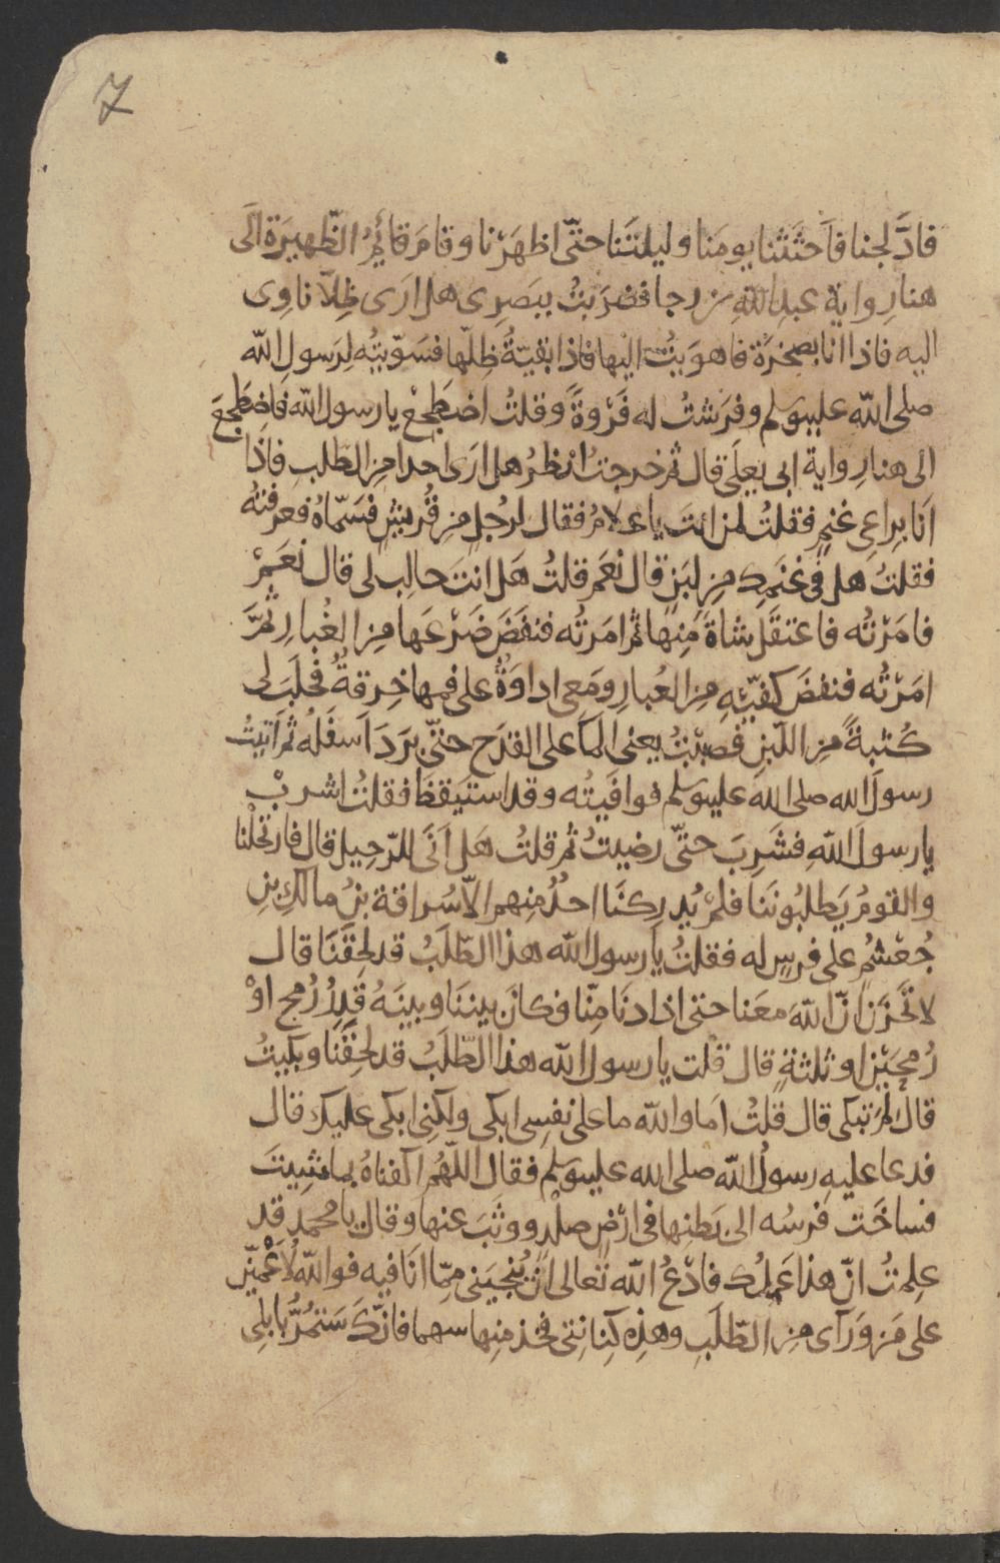 7
فادَّلجنا فاَحثَثنا يومَنا وليلتَنا حتّى اظهَرْنا وقامَ قائِمُ الظّهيرَة الَى
هنا رِواية عبدِ اللّهِ بن رجا فضرَبتُ ببَصرِى هل ارَى ظِلّا ناوِى
اليه فاذا انا بصخرَةٍ فاهوَيتُ اليها فاذا بقيّةُ ظِلّها فسَوّيتُه لِرَسولِ اللّه
صلى اللّه عليه وسلم وفرَشتُ له فَرْوةً وقلتُ اضطَجعْ يا رسول اللّه فاضطَجعَ
الى هنا رِواية ابى يعلَى قال ثم خرجتُ انظُرُ هل ارَى احدا مِن الطلبِ فاذا
انَا بِراعِى غنمٍ فقلتُ لمن انتَ يا غلامُ فقال لرجُلٍ مِن قُريشٍ فسَمّاهُ فعرفتُه
فقلتُ هل فى غنَمِك مِن لبَنٍ قال نعَم قلتُ هَل انتَ حالِب لى قال نعَمْ
فامَرْتُه فاعتقَل شاةً مِنها ثم امَرتُه فنفَضَ ضَرْعَها مِن الغُبارِ ثمَّ
امَرْتُه فنفضَ كفّيْهِ مِن الغُبارِ ومَعى اداوَةٌ على فمِها خِرقةٌ فحلَبَ لى
كُثبةً مِن اللّبنِ فصبَبْتُ يعنى الماَ على القدَح حتّى برَدَ اَسفَلُه ثم اَتيتُ
رسولَ الله صلى الله عليه وسلم فوافَيتُه وقد استَيقظَ فقلتُ اشربْ
يا رسولَ اللّهِ فشَرِبَ حتّى رضيتُ ثم قلتُ هَل اَنَى للرّحِيل قال فارتحَلْنا
والقومُ يَطلبُونَنا فلَمْ يُدرِكنَا احدُ مِنهم الّا سُراقة بنُ مالكِ بنِ
جُعْشُمٍ على فرسٍ له فقلتُ يا رسول اللّه هذا الطّلَبُ قد لحِقَنَا قال
لا تَحْزَن انّ اللّهَ معَنا حتى اذا دنَا مِنّا وكانَ بيننَا وبينَهُ قِدرُ رُمحٍ اوْ
رُمحَيْن او ثلثةٍ قال قلت يا رسول اللّه هذا الطّلَبُ قد لحِقَنَا وبكيتُ
قال لِمَ تبكى قال قلتُ امَا واللّه ما على نفسِى ابكى ولكنِى ابكى عليك قال
فدعا عليهِ رسولُ اللّه صلى الله عليه وسلم فقال اللّهُم اكفناهُ بما شِيتَ
فساخَت فَرسُه الى بَطنِها فى ارْضٍ صلْدٍ ووثَبَ عنها وقال يا محمد قد
علِمتُ انّ هذا عَملُك فادْعُ اللّه تعالى اَنْ يُنجيَنى مِمّا انَا فيه فواللّه لَاُعَمِّيَنّ
على مَن وَرَآى مِن الطّلَبِ وهذِه كِنانتِى فخذ مِنها سهما فانّكَ سَتمُرُّ بابِلى